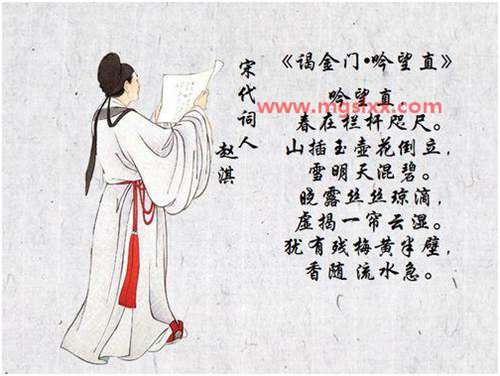 《谒金门•吟望直》
吟望直，
www.mgslxx.com
春在栏杆咫尺。
山插玉壶花倒立，
雪明天混碧。
晓露丝丝琼滴，
虚揭一帘云湿。
犹有残梅黄半壁，
香随流水急。
宋代词人
赵淇